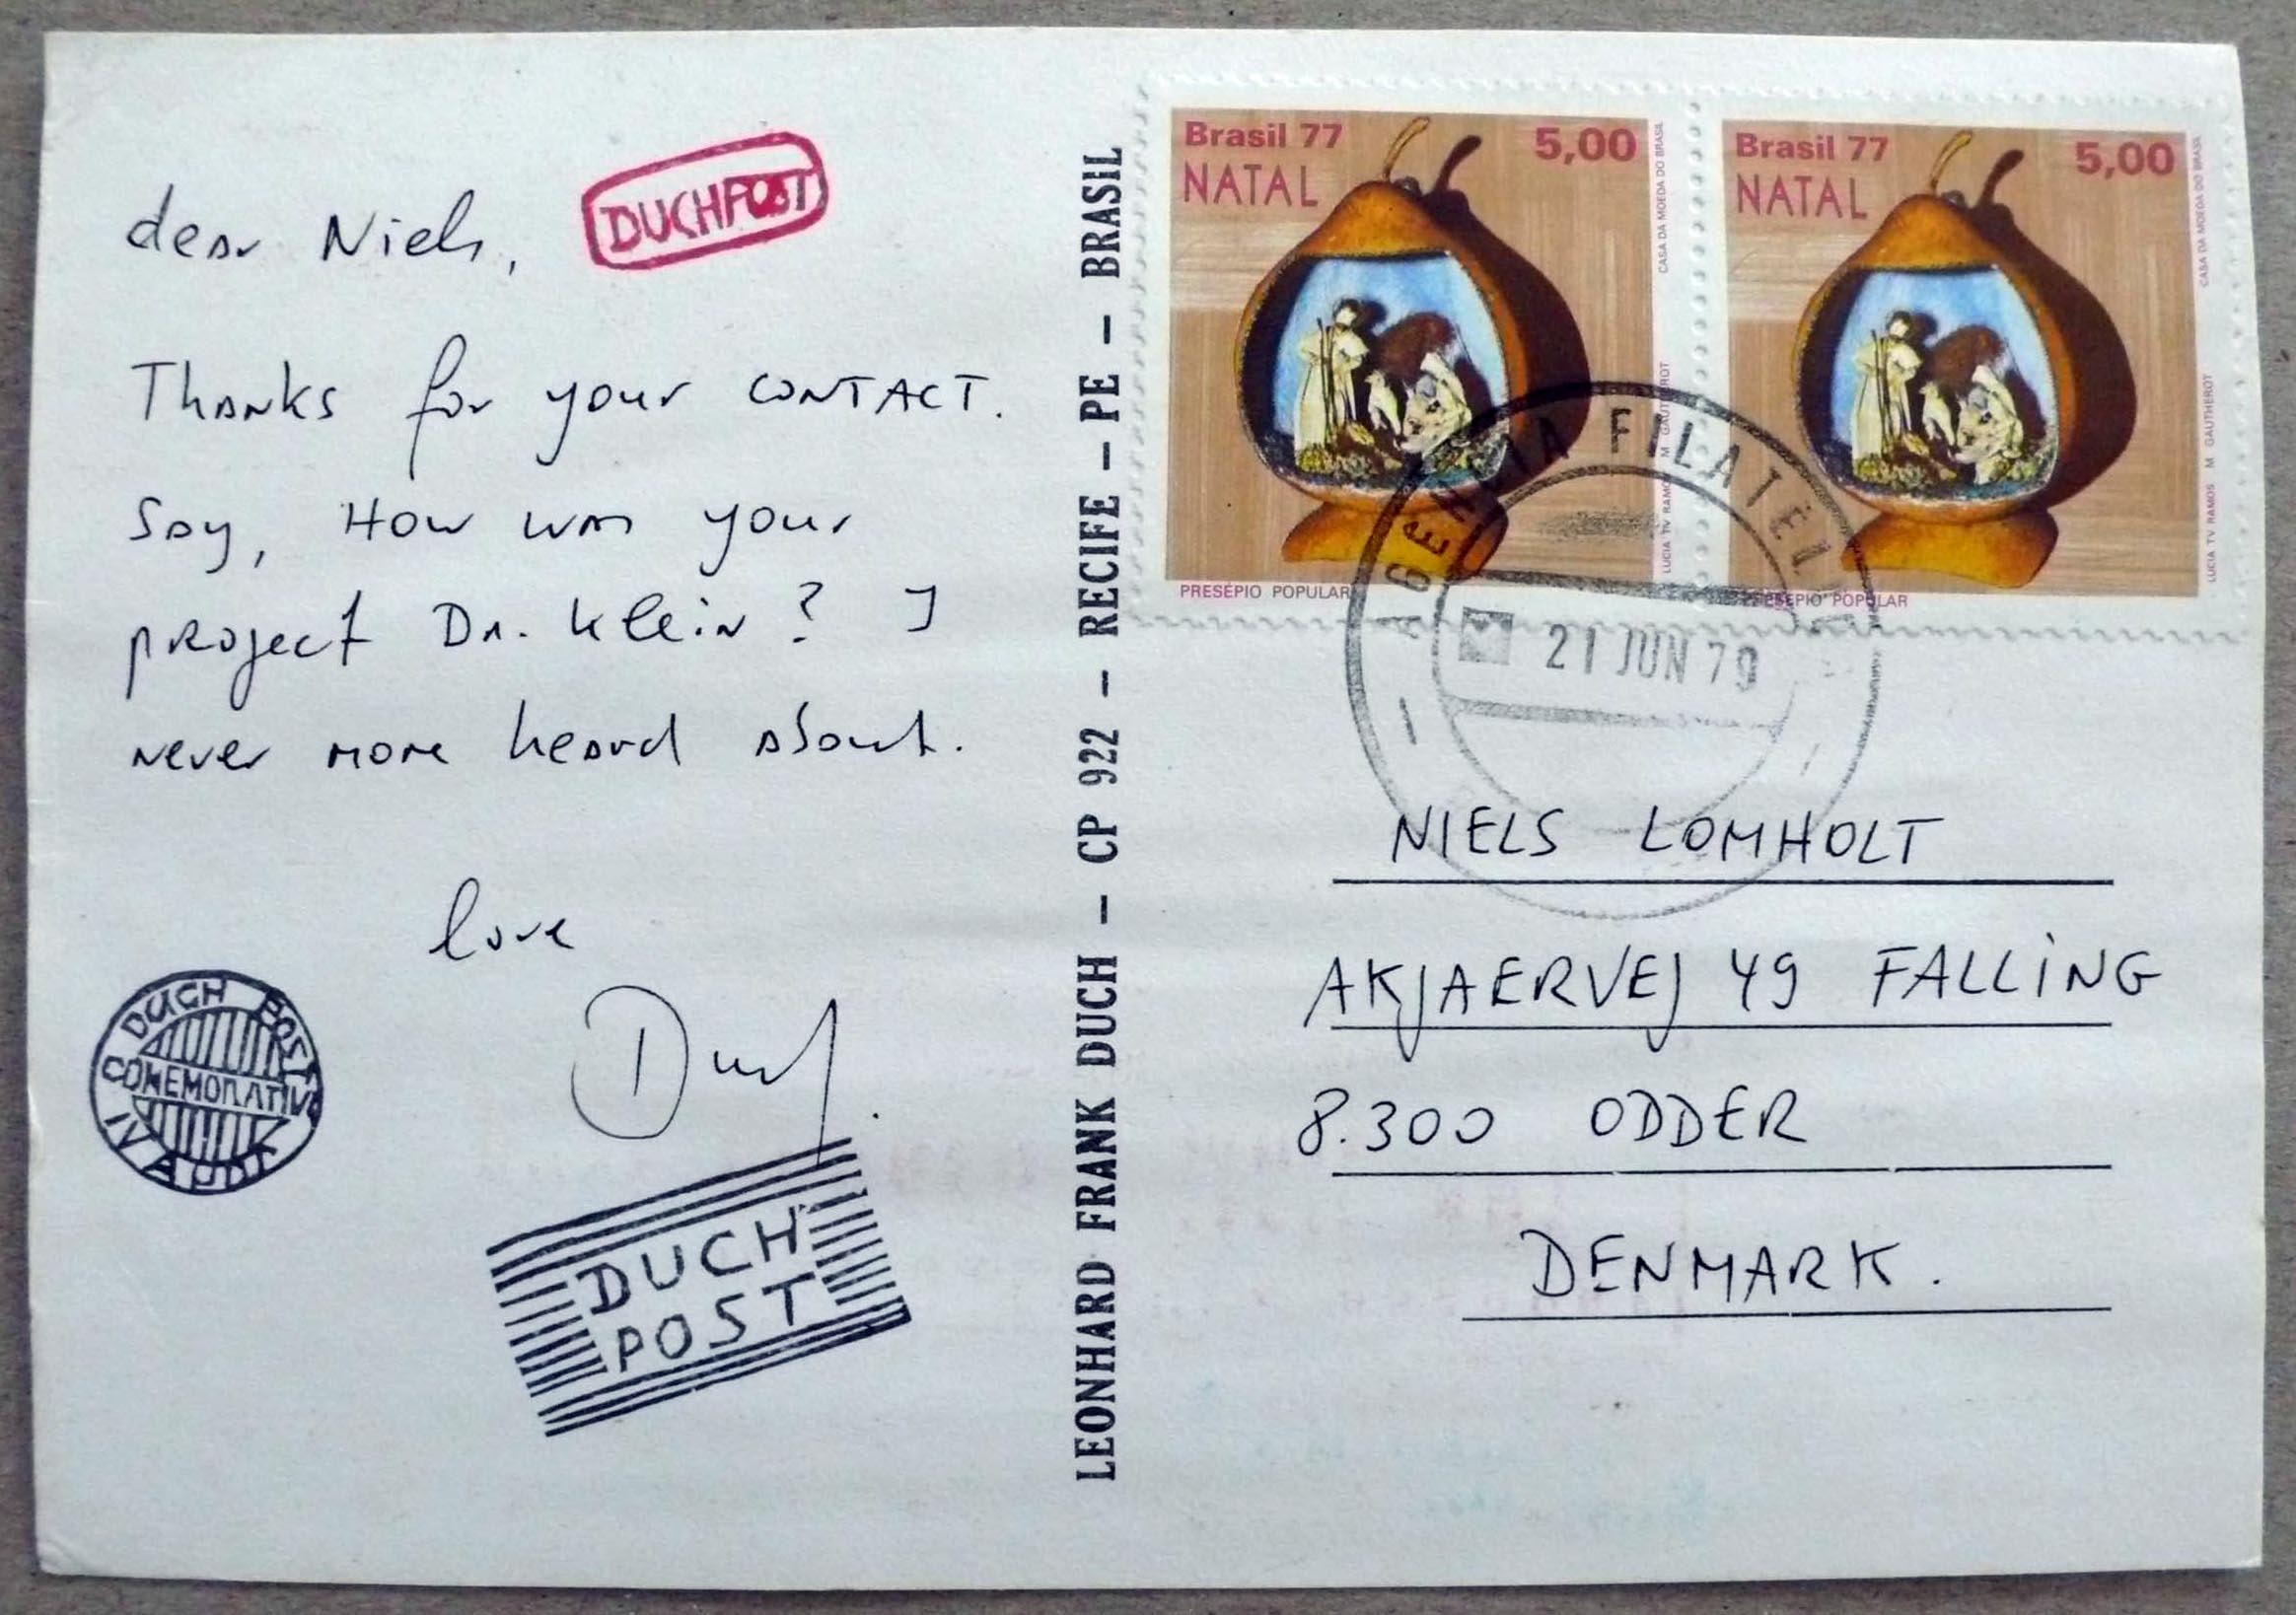 dear Niels,
DUCHPOST
Thanks for your CONTACT.
Say, How was your
project Dr. Klein? I
never more heard about.
love
Duch.
DUCH POST
COMEMORATIVO
IV
DUCH
POST
LEONHARD FRANK DUCH – CP 922 – RECIFE – PE – BRASIL
Brasil 77 5,00
NATAL
CASA DA MOEDA DO BRASIL
LUCIA TV RAMOS M GAUTHEROT
PRESÉPIO POPULAR
Brasil 77 5,00
NATAL
CASA DA MOEDA DO BRASIL
LUCIA TV RAMOS M GAUTHEROT
PRESÉPIO POPULAR
AGENCIA FILATELI
21 JUN 79
NIELS LOMHOLT
AKJAERVEJ 49 FALLING
8.300 ODDER
DENMARK.